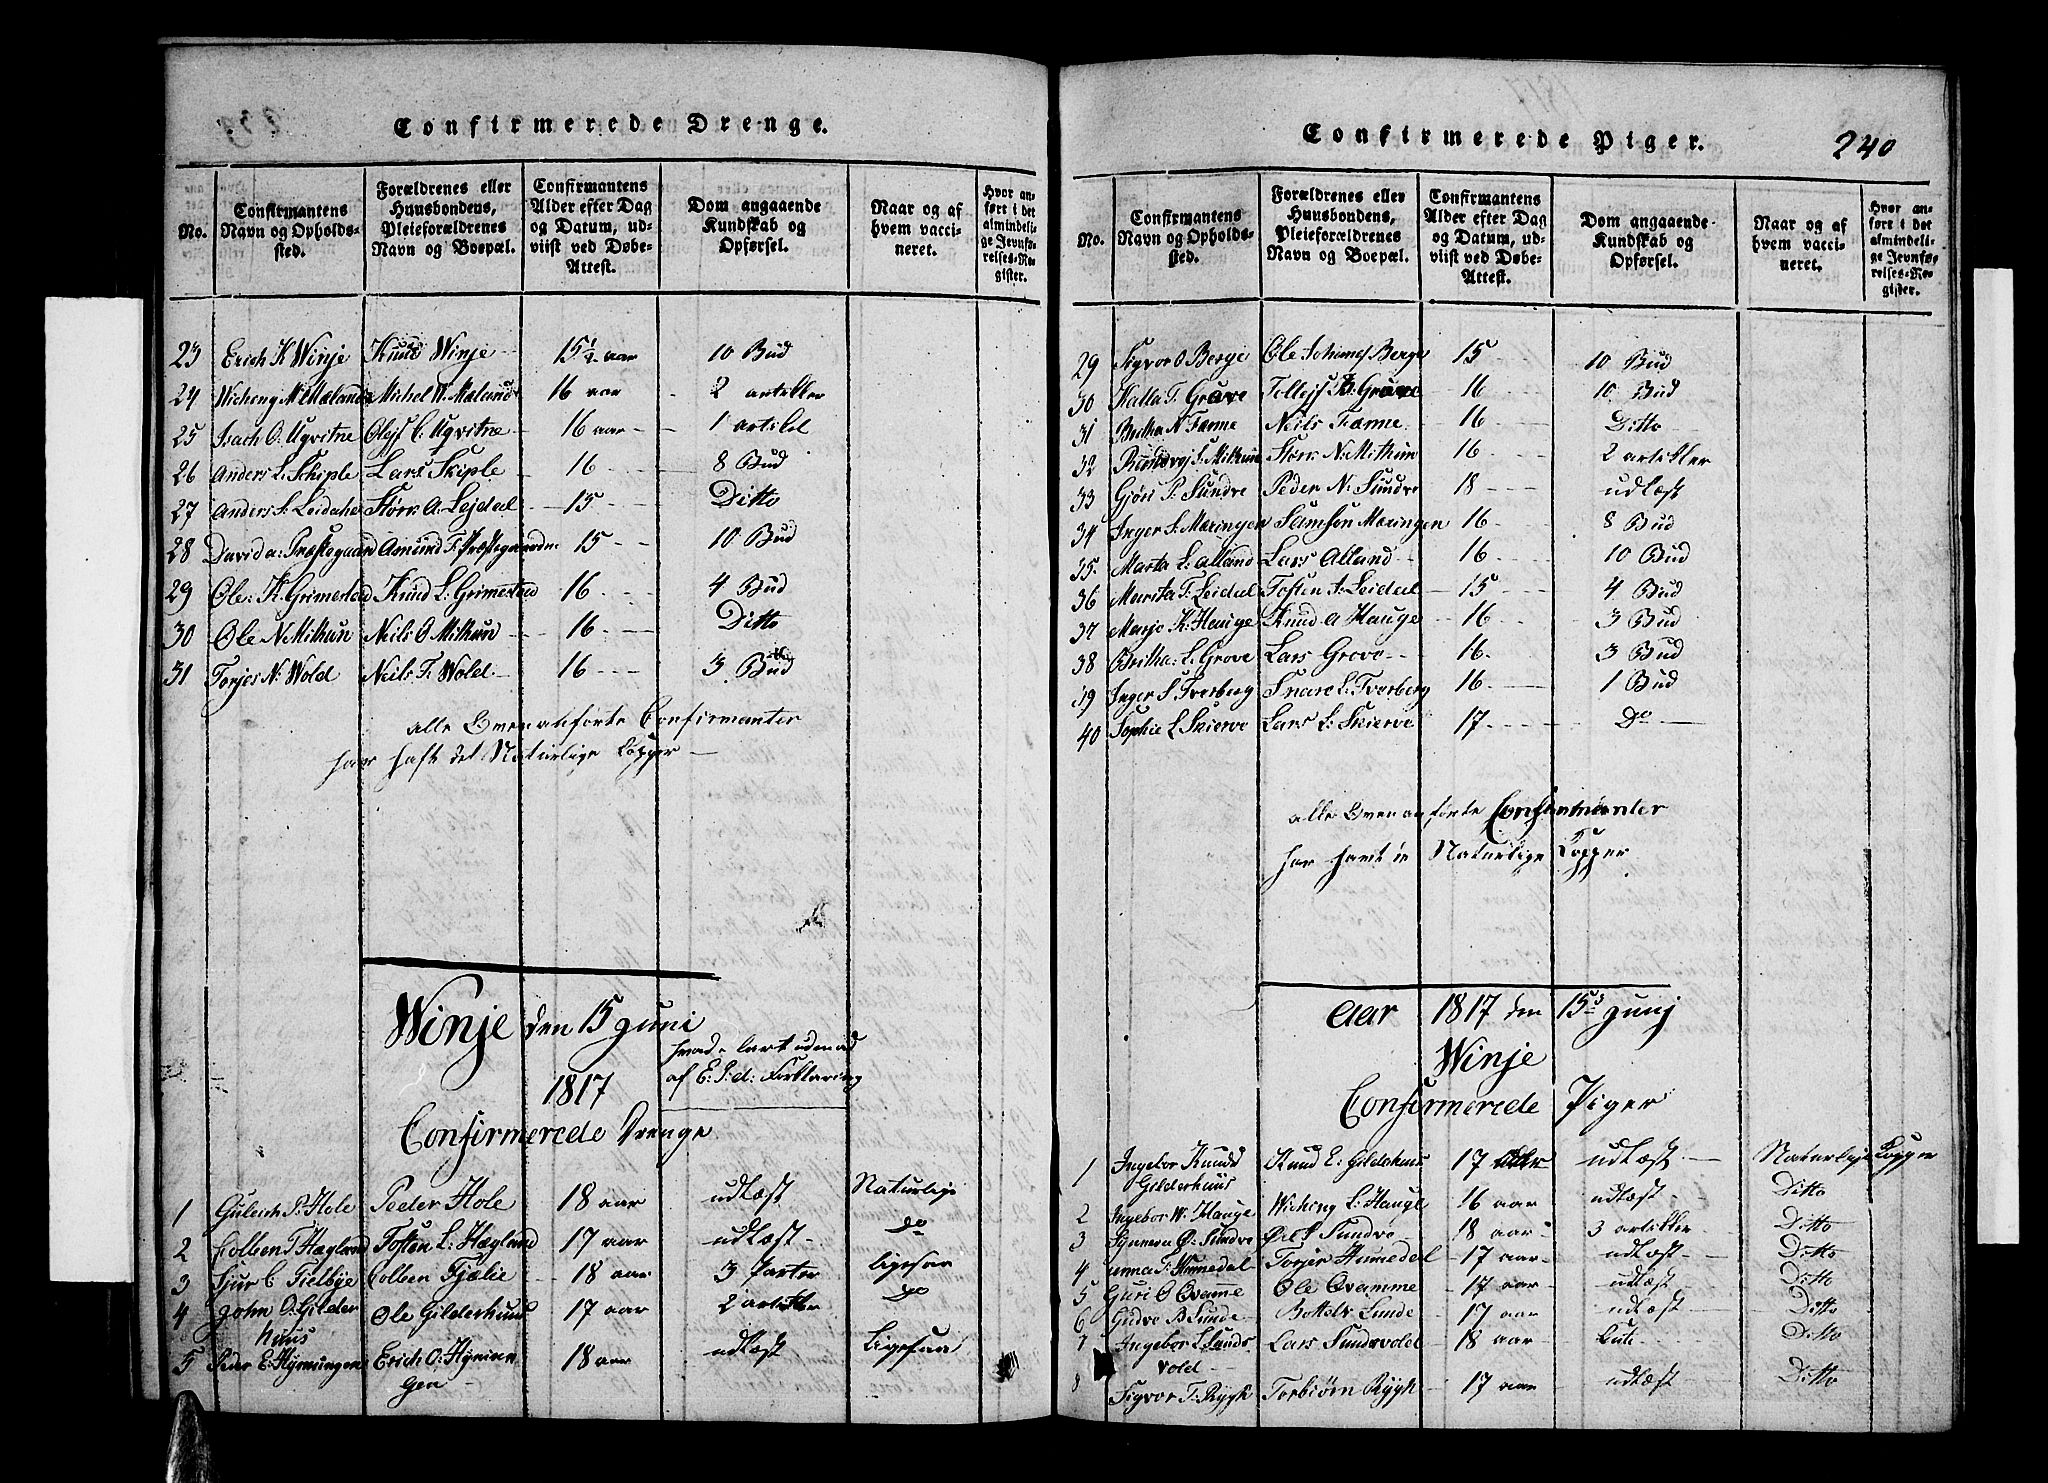 Confirmerede Drenge.
No.
Confirmantens Navn og Opholds-sted.
Forældrenes eller Huusbondens, Pleieforældrenes Navn og Boepæl.
Confirmantens Alder efter Dag og Datum, ud-viist ved Døbe-Attest.
Dom angaaende Kundskab og Opførsel.
Naar og af hvem vacci-neret.
Hvor an-ført i det almindeli-ge Jevnfø-relses-Re-gister.
23 Erich K Winje Knud Winje 15½ aar 10 Bud
24 Wicheng M. Mælands Michel W. Mælands 16 aar 2 artikler
25 Isach O. Ugvitne Olejf C. Ugvitne 16 aar 1 artikel
26 Anders L. Skiple Lars Skiple 16 8 Bud
27 Anders S. Leidahe Størk A. Lejdal 15 Ditto
28 David a: Præstegaard Amund T. Præstegaarden 15 10 Bud
29 Ole: K. Grimestad Knud L. Grimestad 16 4 Bud
30 Ole N Mithun Neils O Mithun 16 Ditto
31 Torjes N: Wold Neils T. Wold 16 3 Bud
alle Ovenanførte Confirmanter
har haft det Naturlige Copper
Winje den 15 Juni
1817
af E: P: d: Forklaring
Confirmerede Drenge
1 Gulech P. Hole Peder Hole 18 aar udlæst Naturlige
2 Colben T Hægland Tosten L: Hægland 17 aar udlæst do
3 Sjur C Tielbye Colben Tjælie 18 aar 3 Parter ligesaa
4 John O. Gilder Ole Gilderhuus 17 aar 2 artikler do
huus
5 Peder E: Hyrmungen Erich O. Hyrmun 18 aar udlæst Ligesaa
gen
Confirmerede Piger.
240
No.
Confirmantens Navn og Opholds-sted.
Forældrenes eller Huusbondens, Pleieforældrenes Navn og Boepæl.
Confirmantens Alder efter Dag og Datum, ud-viist ved Døbe-Attest.
Dom angaaende Kundskab og Opførsel.
Naar og af hvem vacci-neret.
Hvor an-ført i det almindeli-ge Jevnfø-relses-Re-gister.
29 Sigvor O Berge Ole Johannes Berge 15 10 Bud
30 Kalla T. Grave Tollejf B. Grave 16 10 Bud
31 Britha N Tænne Neils Tænne 16 Ditto
32 S. Mithun Størk N. Mithun 16 2 artikler
33 Gjøri P. Sundve Peder N. Sundve 18 udlæst
34 Inger S. Mæringen Samson Mæringen 16 8 Bud
35. Marta L. Alland Lars Alland 16 10 Bud
36 Marita T. Leidal Tosten A. Leidal 15 4 Bud
37 Marjo K. Hauge Knud A Hauge 16 3 Bud
38 Britha: L. Grove Lars Grove 16. 3 Bud
39 Inger S Tverberg Snare L: Tverberg 16 1 Bud
40 Sophie L Skierve Lars L: Skierve 17 Do
alle Ovenanførte Confirmanter
har havt de Naturlige Copper
Aar 1817 den 15d Junj
Winje
Confirmerede Piger
1 Ingebor Knudd Knud E: Gilderhuus 17 aar udlæst Naturlige Kopper
Gilderhuus
2 Ingebor W. Hauge Wicheng L: Hauge 16 aar udlæst Ditto
3 Synneva O: Sundve Sundve 18 aar 3 artikler Ditto
4 T. Humedal Torjer Humedal 17 aar udlæst Ditto
5 Guri O Qvamme Ole Qvamme 17 aar udlæst Ditto
6 Gudve B Lunde Bottelv Lunde 17 aar udlæst Ditto
7 Ingebor L Sunds Lars Sundsvold 18 aar Ditto
vold
8 Sigvor T. Rygh Torbiørn Rygh 17 aar udlæst Ditto